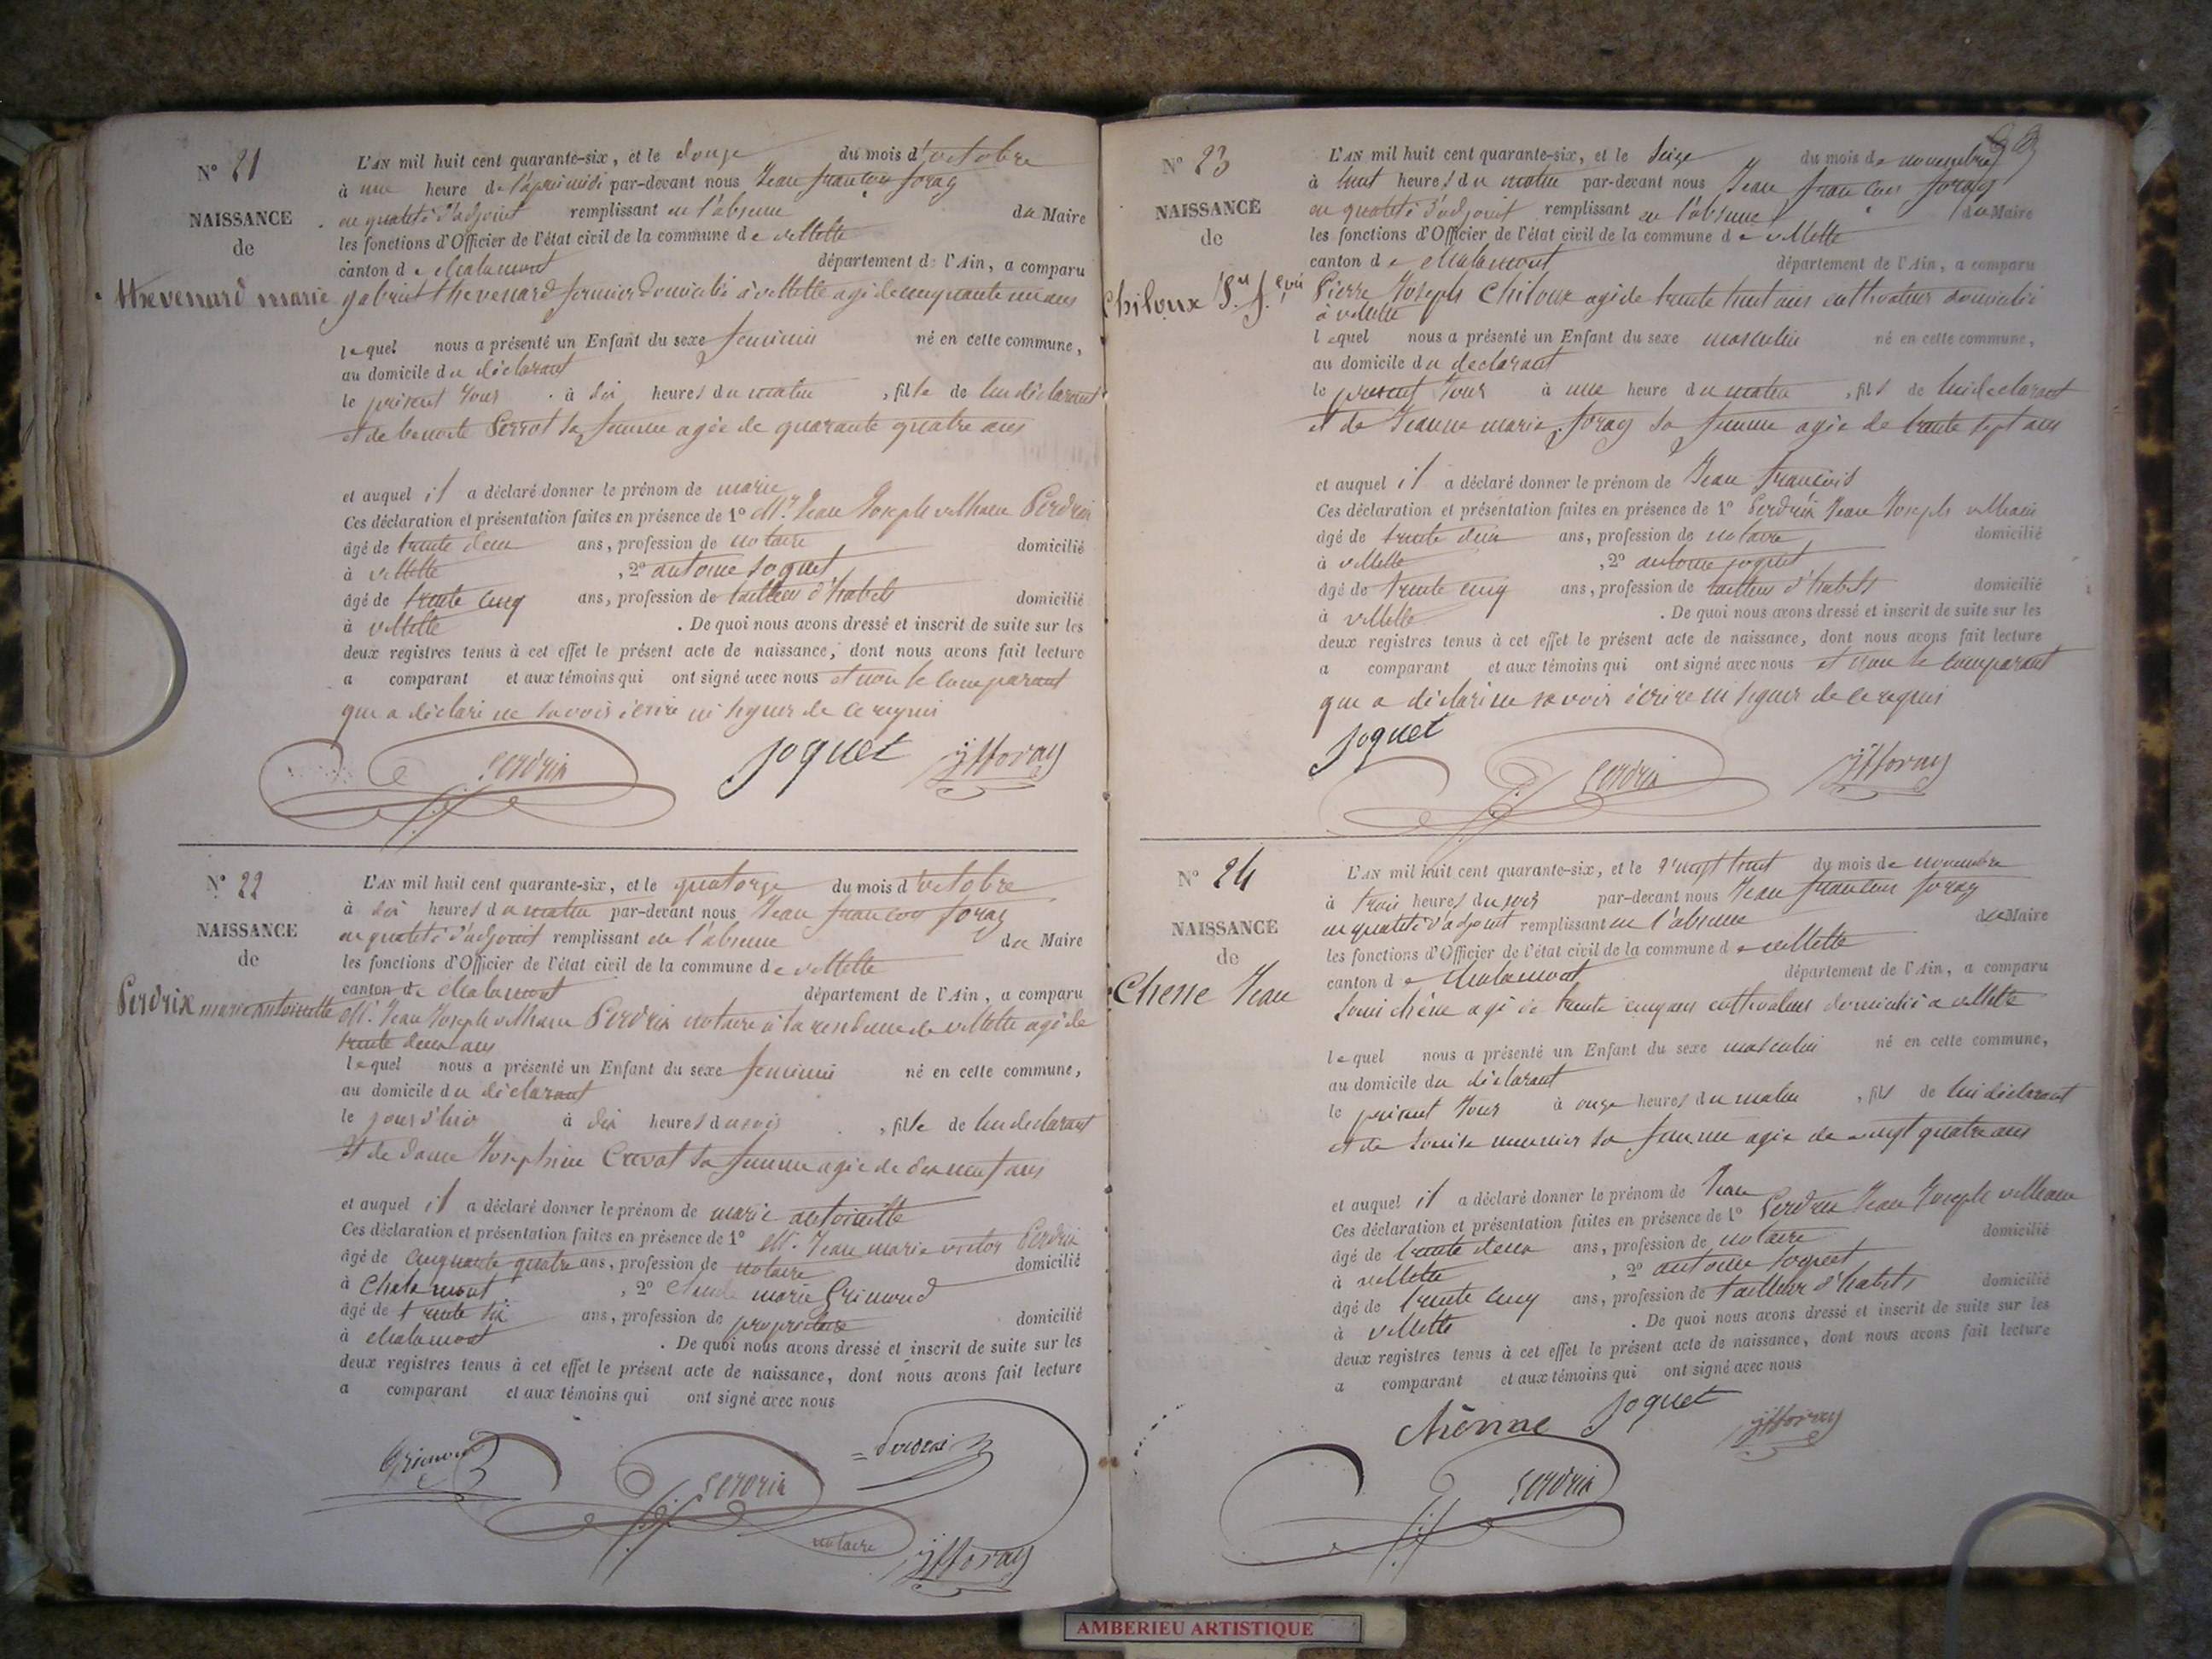 N° 21
NAISSANCE
de
thevenard marie
L'AN mil huit cent quarante-six, et le douze du mois d'octobre
à une heure de l'apremidi par-devant nous Jean françois foray
en qualité d'adjoint remplissant en l'absence du Maire
les fonctions d'Officier de l'état civil de la commune de villette
canton de chalamont département de l'Ain, a comparu
gabriel thevenard fermier domicilié à villette agé de cinquante un ans
lequel nous a présenté un Enfant du sexe feminin né en cette commune,
au domicile du déclarant
le présent jour à six heures du matin, fille de lui déclarant
et de benoite Perrot sa femme agée de quarante quatre ans
et auquel il a déclaré donner le prénom de marie
Ces déclaration et présentation faites en présence de 1° Mr. Jean Joseph Perdrix
âgé de trente deux ans, profession de notaire domicilié
à villette, 2° antoine joguet
âgé de trente cinq ans, profession de tailleur d'habits domicilié
à villette. De quoi nous avons dressé et inscrit de suite sur les
deux registres tenus à cet effet le présent acte de naissance, dont nous avons fait lecture
a comparant et aux témoins qui ont signé avec nous et non le comparant
qui a déclaré ne savoir écrire ni signer de ce requis
Perdrix joguet jffforay
N° 22
NAISSANCE
de
Perdrix marie antoinette
L'AN mil huit cent quarante-six, et le quatorze du mois d'octobre
à dix heures du matin par-devant nous Jean françois foray
en qualité d'adjoint remplissant en l'absence du Maire
les fonctions d'Officier de l'état civil de la commune de villette
canton de chalamont département de l'Ain, a comparu
Mr. Jean Joseph Perdrix notaire à la residence de villette agé de
trente deux ans
lequel nous a présenté un Enfant du sexe feminin né en cette commune,
au domicile du déclarant
le jour d'hier à dix heures du soir, fille de lui declarant
et de dame Josephine Crevat sa femme agée de dix neuf ans
et auquel il a déclaré donner le prénom de marie antoinette
Ces déclaration et présentation faites en présence de 1° Mr. Jean marie victor Perdrix
âgé de cinquante quatre ans, profession de notaire domicilié
à Chalamont, 2° Claude marie Grimaud
âgé de trente six ans, profession de propriétaire domicilié
à chalamont. De quoi nous avons dressé et inscrit de suite sur les
deux registres tenus à cet effet le présent acte de naissance, dont nous avons fait lecture
a comparant et aux témoins qui ont signé avec nous
Grimaud Perdrix Perdrix
notaire jfforay
N° 23
NAISSANCE
de
Chiloux Jn. f.çois
L'AN mil huit cent quarante-six, et le seize du mois de novembre
à huit heures du matin par-devant nous Jean françois foray
en qualité d'adjoint remplissant en l'absence du Maire
les fonctions d'Officier de l'état civil de la commune de villette
canton de chalamont département de l'Ain, a comparu
Pierre Joseph Chiloux agé de trente huit ans cultivateur domicilié
à villette
lequel nous a présenté un Enfant du sexe masculin né en cette commune,
au domicile du declarant
le present jour à une heure du matin, fils de lui declarant
et de Jeanne marie foray sa femme agée de trente sept ans
et auquel il a déclaré donner le prénom de Jean françois
Ces déclaration et présentation faites en présence de 1° Perdrix Jean Joseph
âgé de trente deux ans, profession de notaire domicilié
à villette, 2° antoine joguet
âgé de trente cinq ans, profession de tailleur d'habits domicilié
à villette. De quoi nous avons dressé et inscrit de suite sur les
deux registres tenus à cet effet le présent acte de naissance, dont nous avons fait lecture
a comparant et aux témoins qui ont signé avec nous et non le comparant
qui a déclaré ne savoir écrire ni signer de ce requis
joguet
Perdrix jfforay
N° 24
NAISSANCE
de
Chene Jean
L'AN mil huit cent quarante-six, et le vingt huit du mois de novembre
à trois heures du soir par-devant nous Jean françois foray
en qualité d'adjoint remplissant en l'absence du Maire
les fonctions d'Officier de l'état civil de la commune de villette
canton de chalamont département de l'Ain, a comparu
Louis chêne agé de trente cinq ans cultivateur domicilié a villette
lequel nous a présenté un Enfant du sexe masculin né en cette commune,
au domicile du déclarant
le présent jour à onze heures du matin, fils de lui déclarant
et de Louise meunier sa femme agée de vingt quatre ans
et auquel il a déclaré donner le prénom de Jean
Ces déclaration et présentation faites en présence de 1° Perdrix Jean Joseph
âgé de trente deux ans, profession de notaire domicilié
à villette, 2° antoine joguet
âgé de trente cinq ans, profession de tailleur d'habits domicilié
à villette. De quoi nous avons dressé et inscrit de suite sur les
deux registres tenus à cet effet le présent acte de naissance, dont nous avons fait lecture
a comparant et aux témoins qui ont signé avec nous
chênne joguet jfforay
Perdrix
AMBERIEU ARTISTIQUE